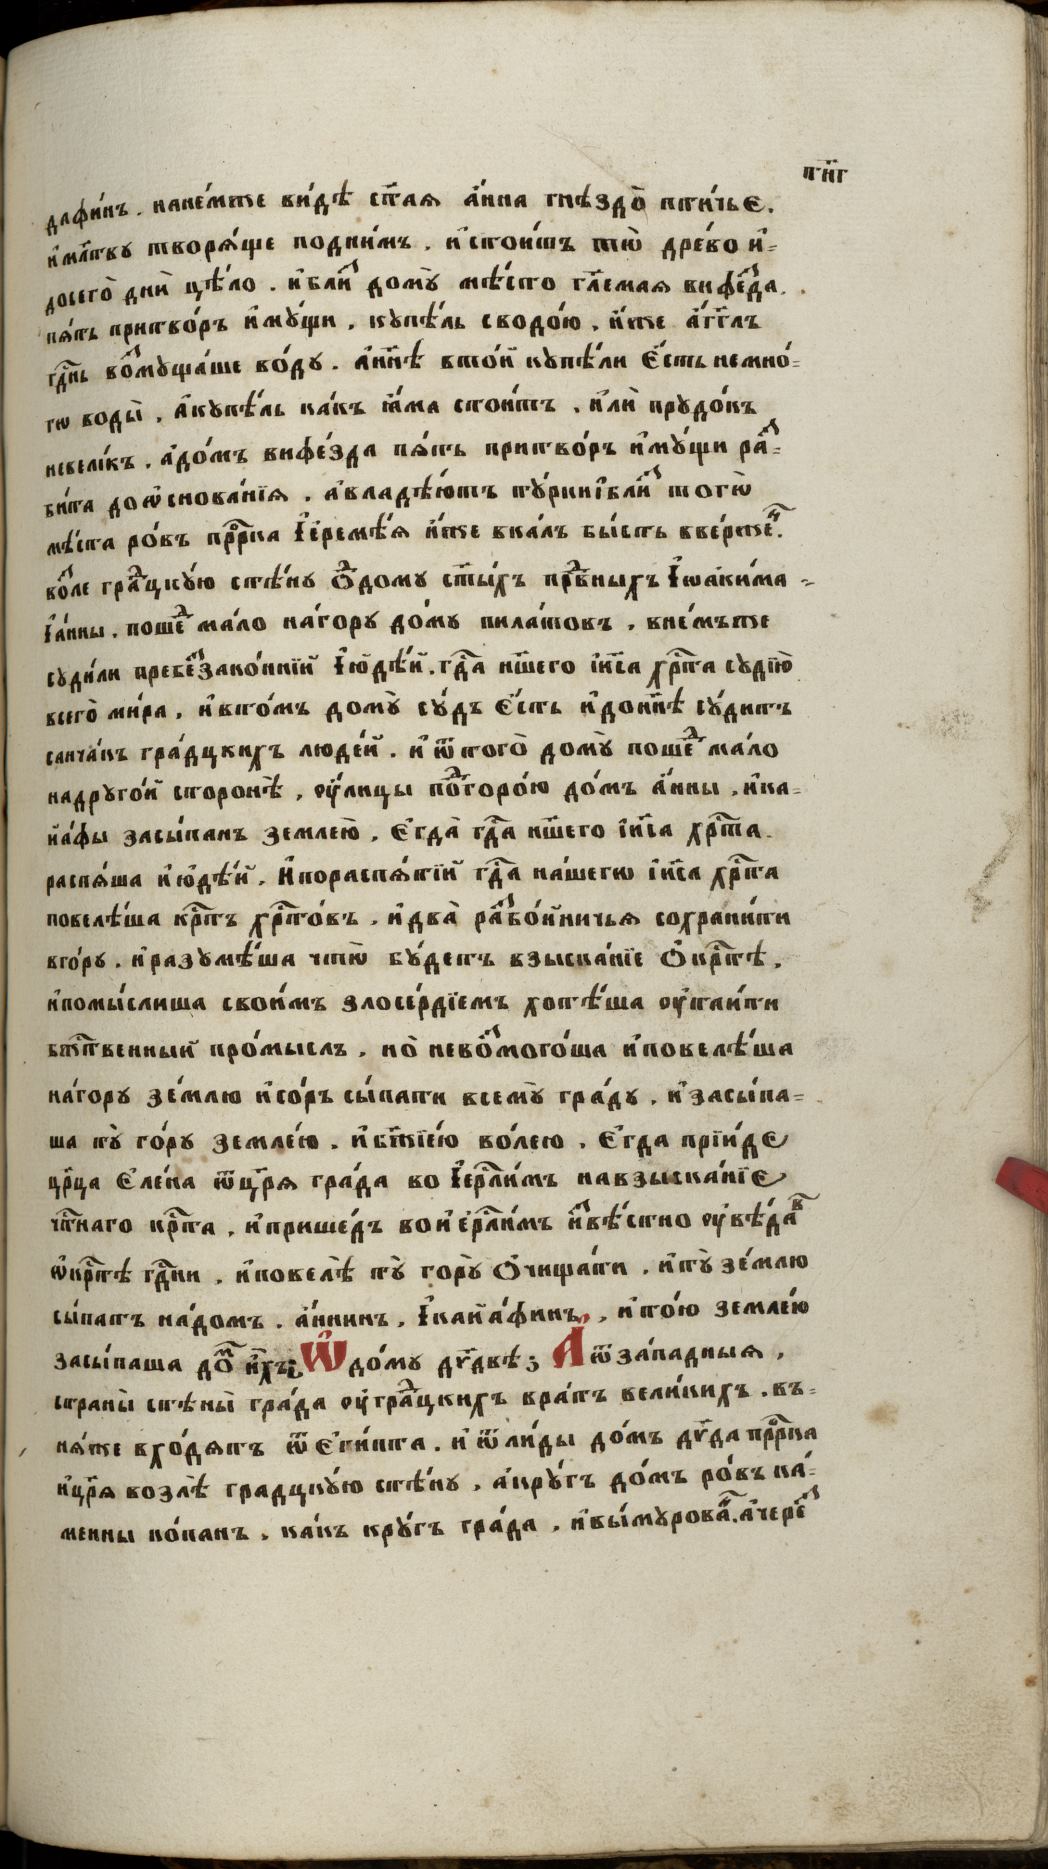 п҃нг
дафи́нъ . нане́мже ви́дѣ ст҃ая а҆́нна гнѣздо̀ пти́чье .
и҆мл҃тву творя́ще подни́мъ . и҆стои́тъ то̀ дре́во и҆=
досего̀ днѝ цѣ́ло . и҆бли́з дому̀ мѣ́сто гл҃емая вифе́зда .
пя́ть притво́ръ и҆му́щи . купѣ́ль сводо́ю . и҆́же а҆́гг҃лъ
гд҃нь возмуща́ше во́ду . а҆нн҃ѣ вто́й купѣ́ли є҆́сть немно́=
гѡ воды̀ . а҆купѣ́ль ка́къ ꙗ҆́ма стои́тъ . и҆лѝ прудо́къ
невели́къ . а҆до́мъ вифе́зда пя́ть притво́ръ и҆му́щи раз=
би́та доѡ҆снова́нїя . а҆владѣ́ютъ ту́рки і҆бли́з тогѡ̀
мѣ́ста ро́въ прⷪ҇рка і҆еремѣ́я и҆́же вка́лъ бы́сть вве́рженъ .
во́зле гра́дцкую стѣ́ну ѿдому ст҃ы́хъ прв҃дныхъ і҆ѡаки́ма =
і҆а҆́нны . поше́д ма́ло на́гору до́му пила́товъ . вне́мъже
суди́ли пребеззако́ннїи і҆юдѣ́й . гд҃а нш҃его і҆и҃са хр҃та судїю̀
всего̀ ми́ра . и҆вто́мъ дому̀ су́дъ є҆́сть и҆донн҃ѣ су́дитъ
санча́къ гра́дцкихъ люде́й . и҆ ѿтого̀ дому̀ поше́д ма́ло
надруго́й сторонѣ̀ , ᲂу҆́лицы подгоро́ю до́мъ а҆́нны , и҆ка=
иа́фы засы́панъ земле́ю , є҆гда̀ гд҃а нш҃его і҆и҃са хр҃та .
распя́ша и҆юдѣ́й . И҆пораспя́тїй гд҃а на́шегѡ і҆и҃са хр҃та
повелѣ́ша кр҃тъ хр҃то́въ . и҆два̀ разбо́йничья сохрани́ти
вго́ру . и҆разумѣ́ша что̀ бу́детъ взыска́нїе ѻ҆кр҃тѣ̀ ,
и҆помы́слиша свои́мъ злосе́рдїемъ хотѣ́ша ᲂу҆таи́ти
бж҃твенный про́мыслъ . но̀ невозмого́ша и҆повелѣ́ша
на́гору зе́млю и҆со́ръ сы́пати всему̀ гра́ду . и҆засы́па=
ша ту̀ го́ру земле́ю . и҆бж҃їею во́лею . є҆гда̀ прїи́де
цр҃ца є҆ле́на ѿцр҃я гра́да во і҆ер҃ли́мъ навзыска́нїе
чт҃наго кр҃та . и҆прише́дъ вои҆ер҃ли́мъ и҆звѣ́стно ᲂу҆вѣ́дав
ѡ҆кр҃тѣ гд҃ни . и҆повелѣ̀ ту̀ гору̀ ѻ҆чища́ти . и҆ту̀ зе́млю
сы́пать на́домъ . а҆́ннинъ , і҆каиа́финъ , и҆то́ю земле́ю
засы́паша до́м и҆́хъ : Ѡ҆ до́му дв҃дѣ ; А҆ ѿза́падныя ,
страны̀ стѣны̀ гра́да ᲂу҆гра́дцкихъ вра́тъ вели́кихъ . въ=
ня́же вхо́дятъ ѿ є҆ги́пта . и҆ ѿли́ды до́мъ дв҃да прⷪ҇рка
и҆цр҃я возлѣ̀ гра́дцкую стѣ́ну , а҆кру́гъ до́мъ ро́въ ка́=
менны ко́панъ , ка́къ кру́гъ гра́да , и҆вы́мурован . а҆че́рез